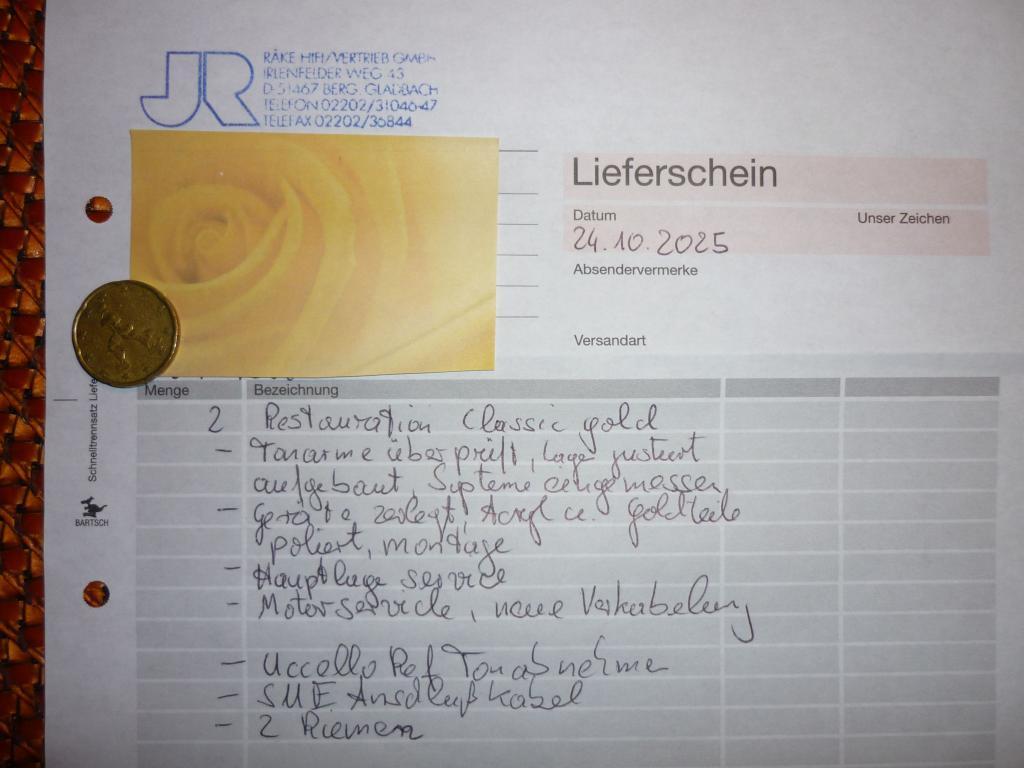 JR
RÄKE HIFI/VERTRIEB GMBH
IRLENFELDER WEG 43
D-51467 BERG. GLADBACH
TELEFON 02202/31046-47
TELEFAX 02202/36844
Lieferschein
Datum
Unser Zeichen
24.10.2025
Absendervermerke
Versandart
Menge
Bezeichnung
2 Restauration Classic gold
- Tonarme überprüft, Lager justiert
aufgebaut, Systeme eingemessen
- Geräte zerlegt, Acryl u. Goldteile
poliert, montage
- Hauptlager service
- Motorservice, neue Verkabelung
- Uccello Ref Tonabnehmer
- SME Anschlußkabel
- 2 Riemen
Schnelltrennsatz Liefe
BARTSCH